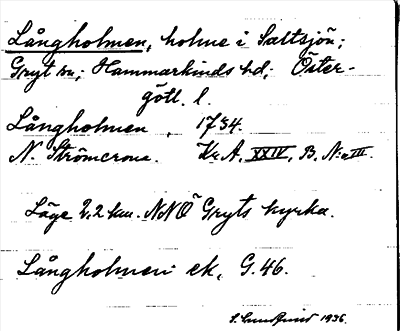 Långholmen, holme i Saltsjön;
Gryt sn; Hammarkinds hd; Öster-
götl. l.
Långholmen, 1734.
N. Strömcrona. Kr.A. XXIV, B. N:o III.
Läge 2,2 km. NNÖ Gryts kyrka.
Långholmen ek. G. 46.
S. Lundqvist 1936.